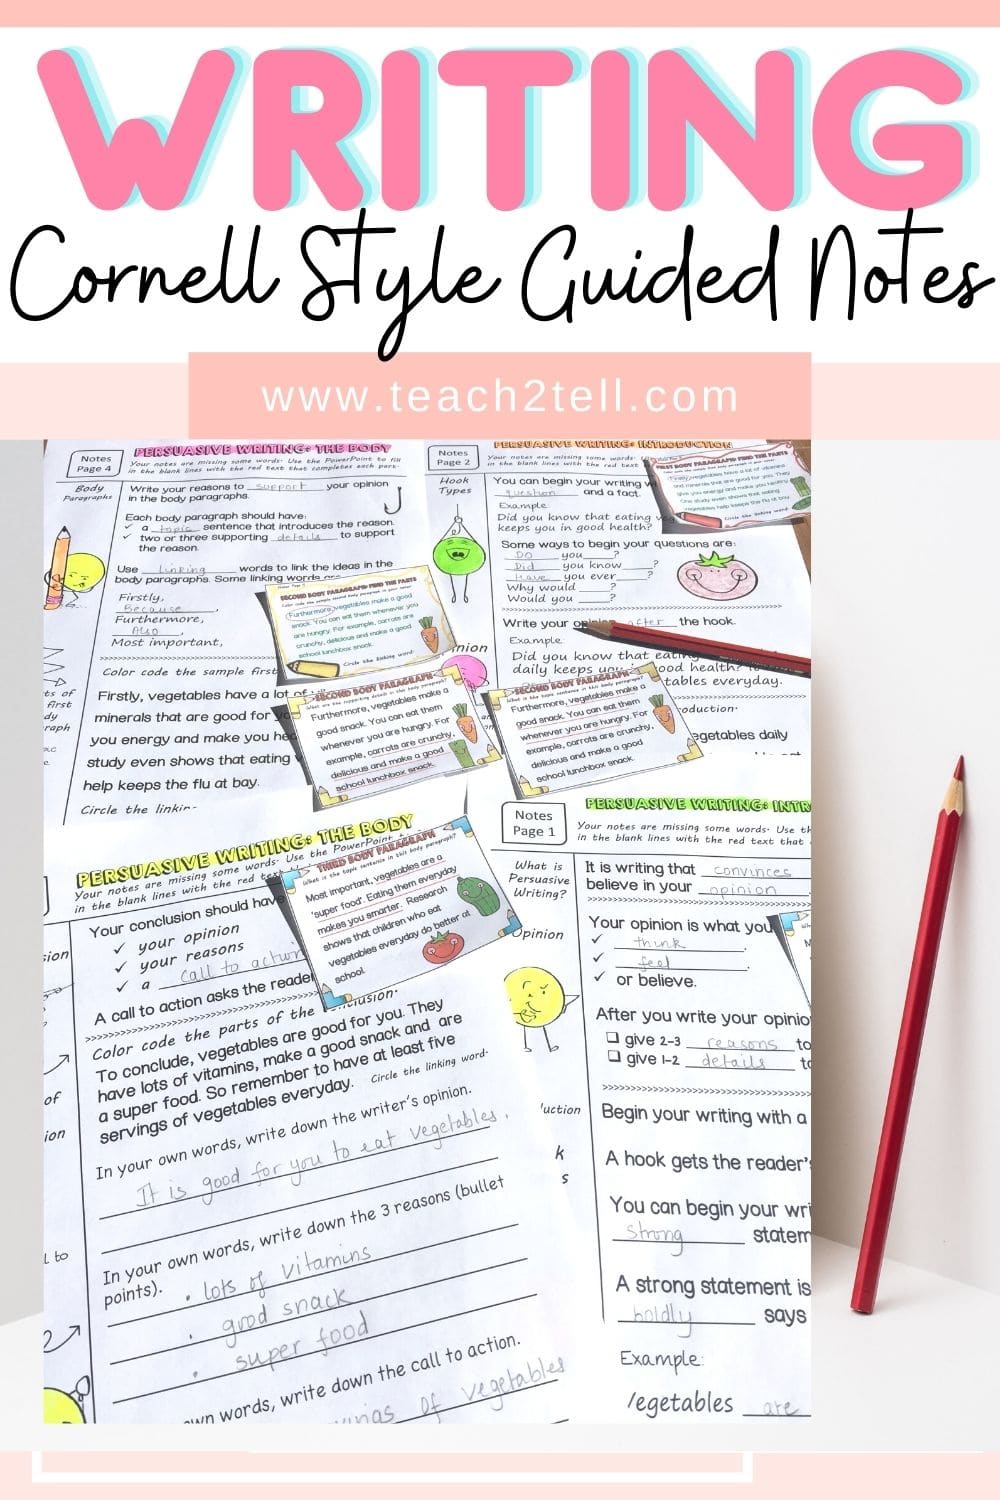 WRITING
Cornell Style Guided Notes
www.teach2tell.com
Notes
Page 4
PERSUASIVE WRITING: THE BODY
Your notes are missing some words. Use the PowerPoint to fill
in the blank lines with the red text that completes each part.
Body
Paragraphs
Write your reasons to support your opinion
in the body paragraphs.
Each body paragraph should have:
✓ a topic sentence that introduces the reason.
✓ two or three supporting details to support
the reason.
Use linking words to link the ideas in the
body paragraphs. Some linking words are
Firstly,
Because,
Furthermore,
Also,
Most important,
Color code the sample first
Firstly, vegetables have a lot of
minerals that are good for
you energy and make you
study even shows that eating
help keeps the flu at bay.
Circle the linkin
SECOND BODY PARAGRAPH: FIND THE PARTS
Furthermore, vegetables make a good
snack. You can eat them whenever you
are hungry. For example, carrots are
crunchy, delicious and make a good
school lunchbox snack.
Circle the linking word.
SECOND BODY PARAGRAPH
What are the supporting details in this body paragraph?
Furthermore, vegetables make a
good snack. You can eat them
whenever you are hungry. For
example, carrots are crunchy,
delicious and make a good
school lunchbox snack.
Notes
Page 2
PERSUASIVE WRITING: INTRODUCTION
Your notes are missing some words.
in the blank lines with the red text
Hook
Types
You can begin your writing w
question and a fact.
Example:
Did you know that eating veg
keeps you in good health?
Some ways to begin your questions are:
Do you ?
Did you know ?
Have you ever ?
Why would ?
Would you ?
Write your opinion after the hook.
Example:
Did you know that eating
daily keeps you good health?
tables everyday.
oduction.
egetables daily
FIRST BODY PARAGRAPH: FIND THE PARTS
Firstly, vegetables have a lot of vitamins
and minerals that are good for you. They
give you energy and make you healthy.
One study even shows that eating
vegetables help keeps the flu at bay.
Circle the linking word.
SECOND BODY PARAGRAPH
What is the topic sentence in this body paragraph?
Furthermore, vegetables make a
good snack. You can eat them
whenever you are hungry. For
example, carrots are crunchy,
delicious and make a good
school lunchbox snack.
PERSUASIVE WRITING: THE BODY
Your notes are missing some words. Use the PowerPoint
in the blank lines with the red text
Your conclusion should have
✓ your opinion
✓ your reasons
✓ a call to action
A call to action asks the reader
Color code the parts of the conclusion.
To conclude, vegetables are good for you. They
have lots of vitamins, make a good snack and are
a super food. So remember to have at least five
servings of vegetables everyday. Circle the linking word.
In your own words, write down the writer's opinion.
It is good for you to eat vegetables.
In your own words, write down the 3 reasons (bullet
points).
• lots of vitamins
• good snack
• super food
own words, write down the call to action.
of vegetables
THIRD BODY PARAGRAPH
What is the topic sentence in this body paragraph?
Most important, vegetables are a
'super food'. Eating them everyday
makes you smarter. Research
shows that children who eat
vegetables everyday do better at
school.
Notes
Page 1
PERSUASIVE WRITING: INTR
Your notes are missing some words. Use th
in the blank lines with the red text that
What is
Persuasive
Writing?
It is writing that convinces
believe in your opinion
Opinion
Your opinion is what you
✓ think.
✓ feel.
✓ or believe.
After you write your opinio
❑ give 2-3 reasons to
❑ give 1-2 details to
Begin your writing with a
A hook gets the reader's
You can begin your wri
strong statem
A strong statement is
boldly says
Example:
Vegetables are